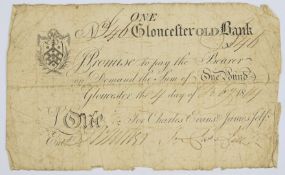 ONE
Gloucester OLD Bank
I Promise to pay the Bearer
on Demand the Sum of One Pound
Gloucester the 4 day of
One For Charles Evans James Jelf
Entd